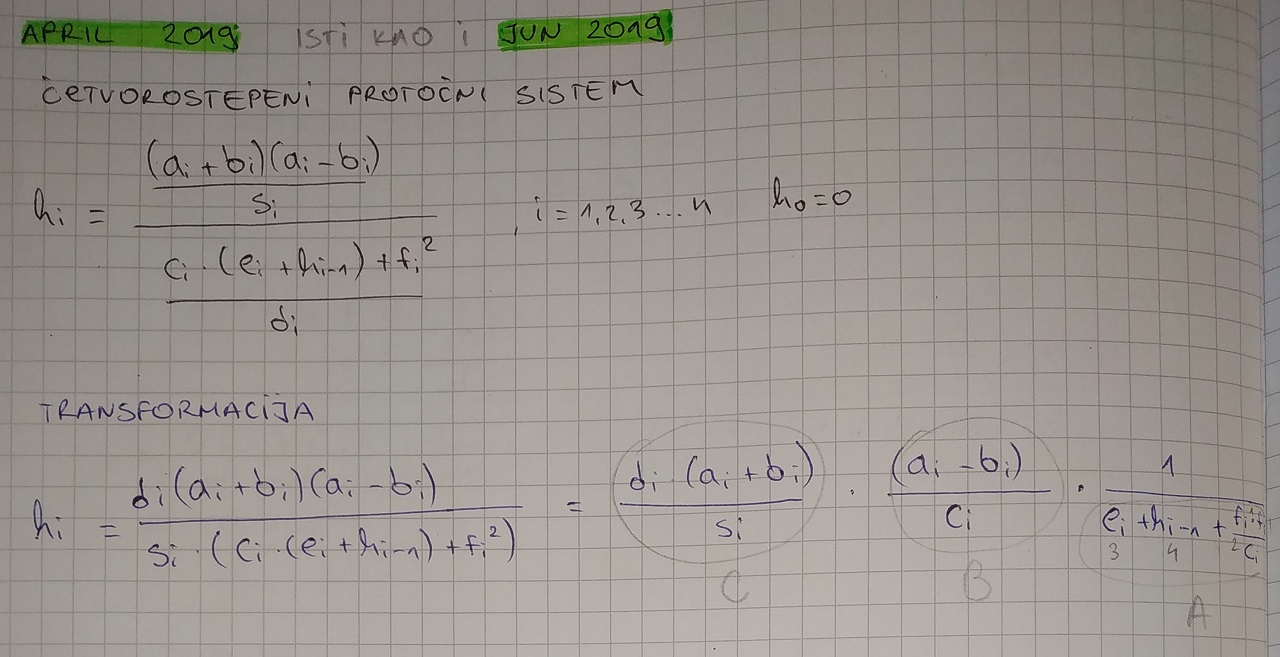 APRIL 2019 ISTI KAO I JUN 2019
ČETVOROSTEPENI PROTOČNI SISTEM
hᵢ = ((aᵢ + bᵢ)(aᵢ - bᵢ) / sᵢ) / ((cᵢ · (eᵢ + hᵢ₋₁) + fᵢ²) / dᵢ) , i = 1,2,3...n h₀ = 0
TRANSFORMACIJA
hᵢ = dᵢ(aᵢ + bᵢ)(aᵢ - bᵢ) / (sᵢ · (cᵢ · (eᵢ + hᵢ₋₁) + fᵢ²)) = dᵢ (aᵢ + bᵢ) / sᵢ · (aᵢ - bᵢ) / cᵢ · 1 / (eᵢ + hᵢ₋₁ + fᵢ·fᵢ / cᵢ)
3 4 2
C B A